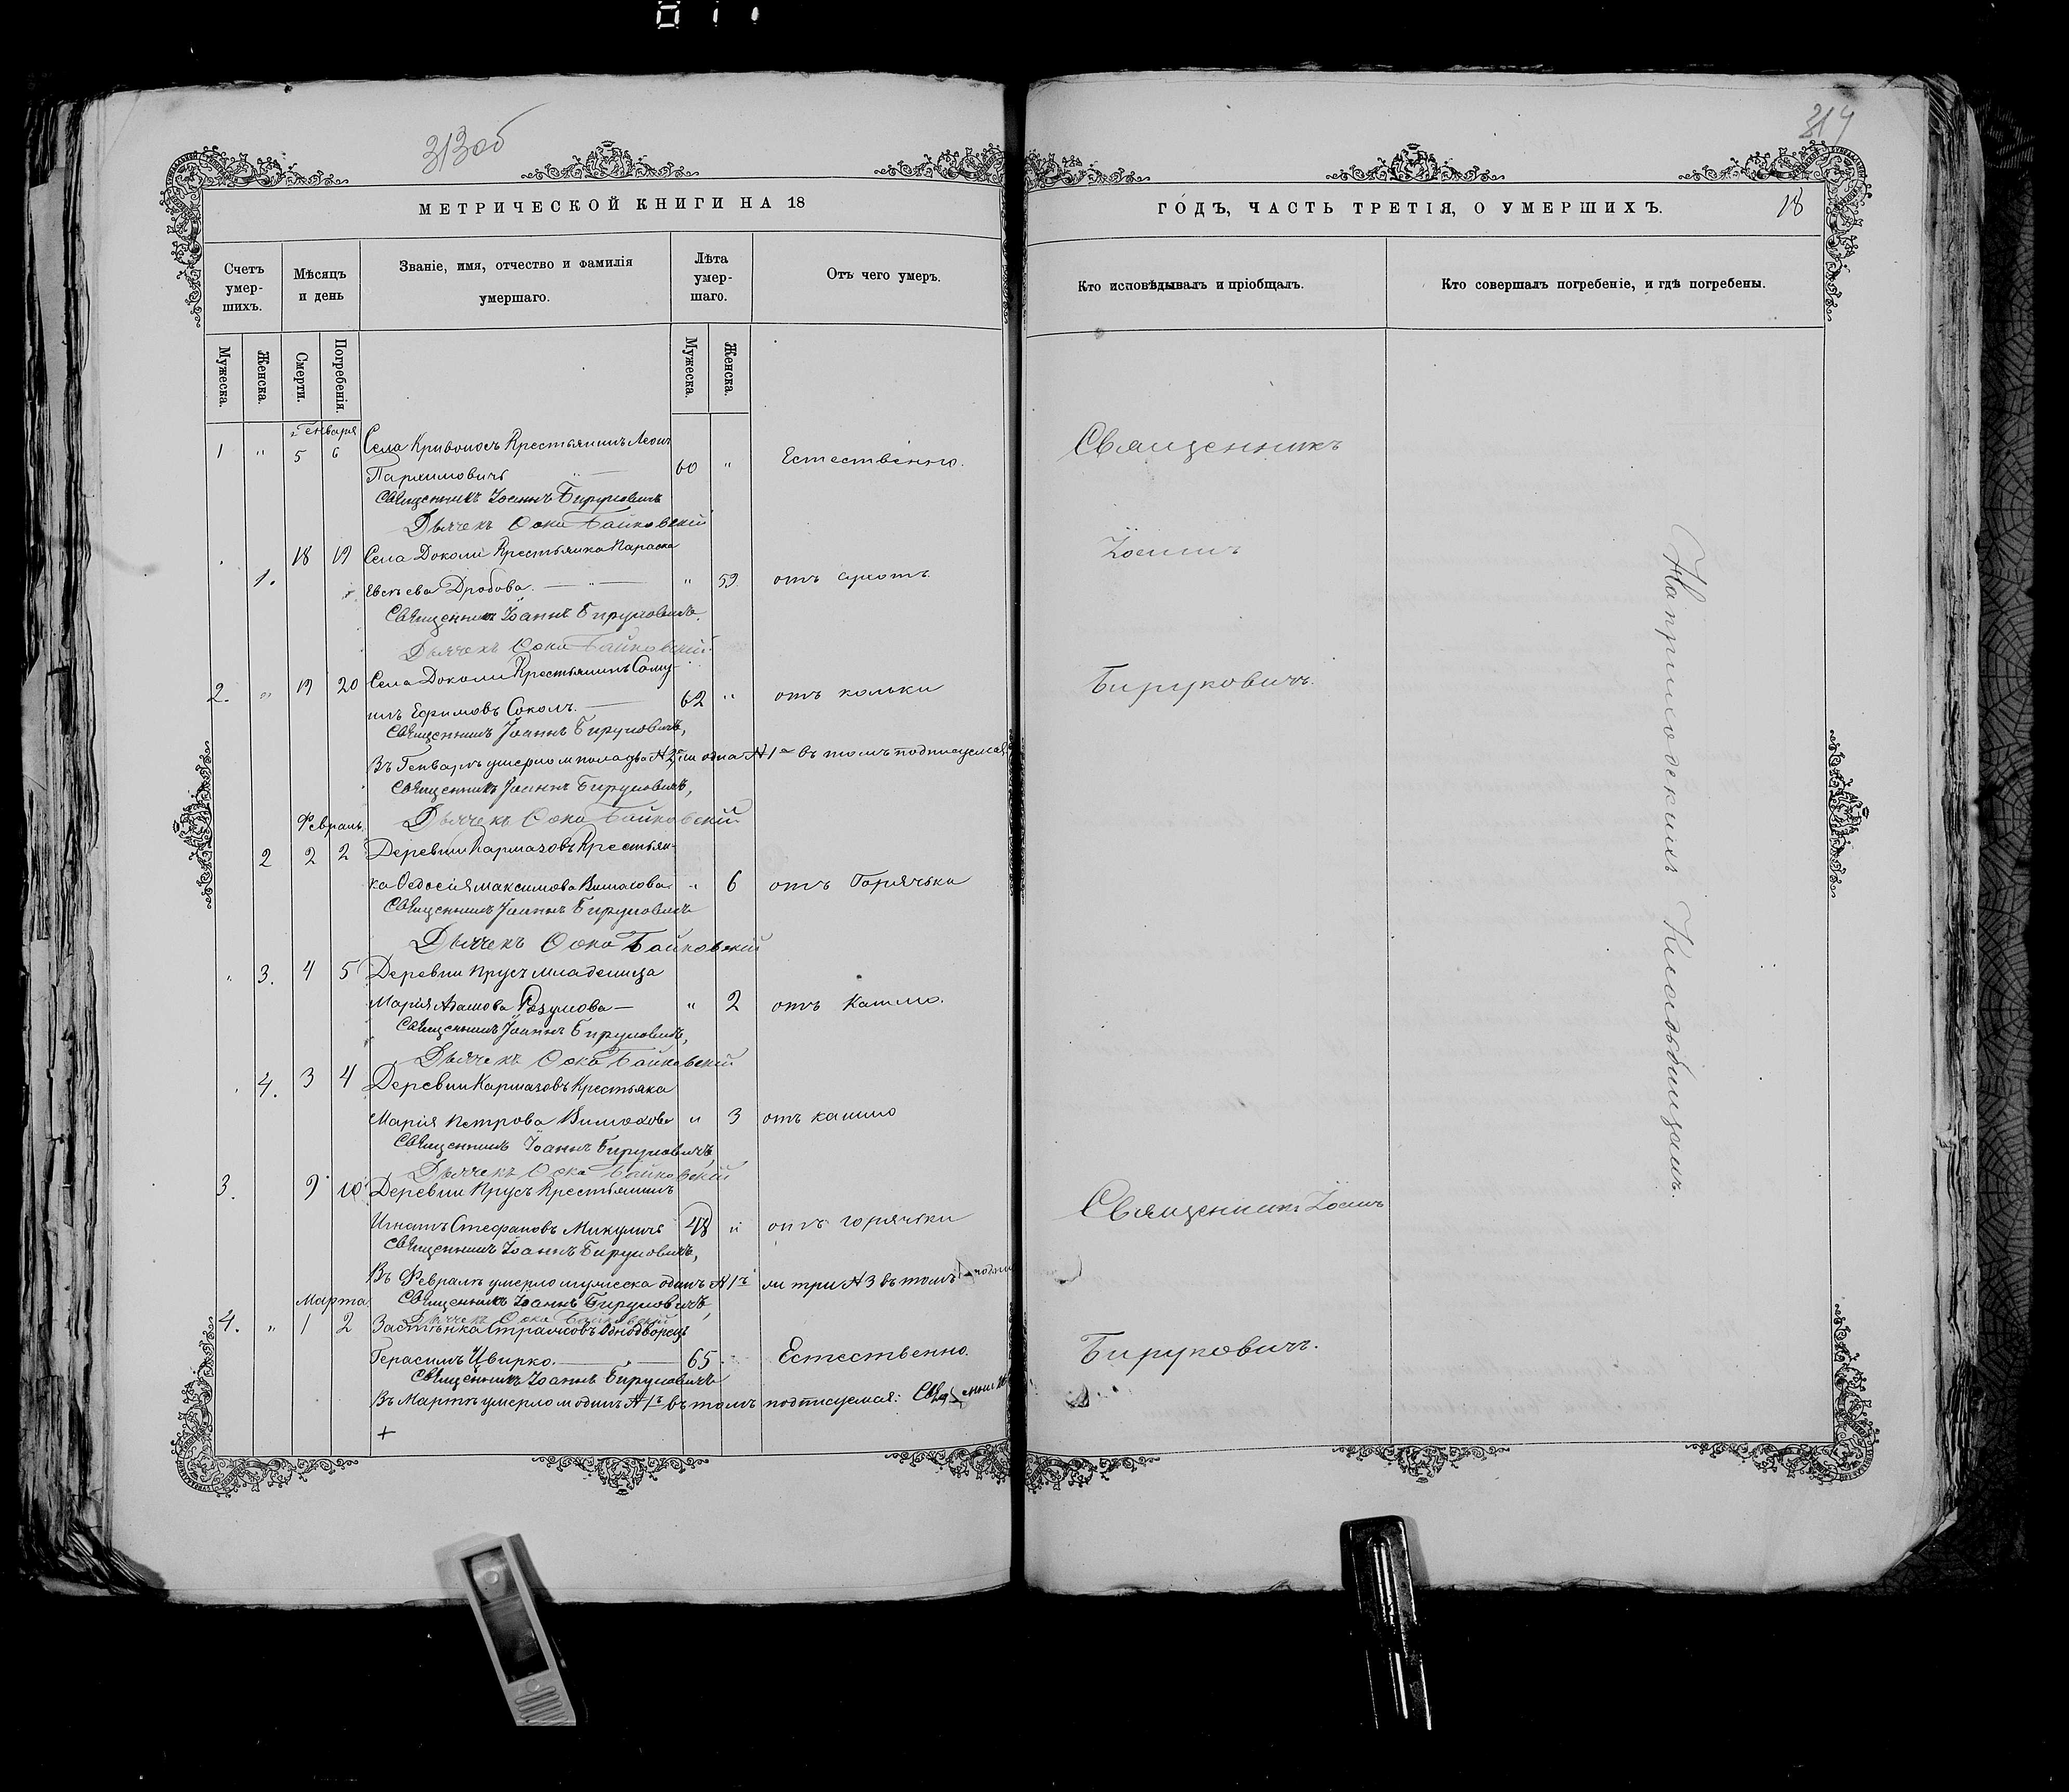 011
313об
МЕТРИЧЕСКОЙ КНИГИ НА 18
Счетъ умер-шихъ.
Мѣсяцъ и день
Званіе, имя, отчество и фамилія умершаго.
Лѣта умер-шаго.
Отъ чего умеръ.
Мужеска.
Женска.
Смерти.
Погребенія.
Мужеска.
Женска.
Генваря
1 " 5 6 Села Кривоносъ Крестьянинъ Леонъ
Пархимовичъ 60 " Естественно.
Священникъ Іоаннъ Бируковичъ
Дьячекъ Байковскій
18 19 Села Доколи Крестьянка Параска
1. Евсѣева Дробова. " 59 отъ сухотъ.
Священникъ Іоаннъ Бируковичъ.
Дьячекъ Байковскій
2. " 19 20 Села Доколи Крестьянинъ Саму-
илъ Ефимовъ Соколъ. 62 " отъ кольки
Священникъ Іоаннъ Бируковичъ,
Въ Генварѣ умерло м пола два №2 одна №1 въ томъ подписуемся
Священникъ Іоаннъ Бируковичъ,
Дьячекъ Байковскій
Февраль
2 2 2 Деревни Кармазовъ Крестьян-
ка Ѳедосія Максимова " 6 отъ Горячьки
Священникъ Іоаннъ Бируковичъ
Дьячекъ Байковскій
" 3. 4 5 Деревни Прусъ младеница
Марія Адамова Разумова — " 2 отъ Кашлю.
Священникъ Іоаннъ Бируковичъ,
Дьячекъ Байковскій
4. 3 4 Деревни Кармазовъ Крестьяка
Марія Петрова " 3 отъ кашлю
Священникъ Іоаннъ Бируковичъ,
Дьячекъ Байковскій
3. 9 10 Деревни Прусъ Крестьянинъ
Игнатъ Стефановъ Микуличъ 48 " отъ горячьки
Священникъ Іоаннъ Бируковичъ,
Въ Февралѣ умерло мужеска одинъ №1 три №3 въ томъ
Священникъ Іоаннъ Бируковичъ,
Дьячекъ Байковскій
Марта
4. " 1 2 Застѣнка Однодворецъ
Герасимъ Цвирко. 65 Естественно.
Священникъ Іоаннъ Бируковичъ
Въ Мартѣ умерло м одинъ №1 въ томъ подписуемся:
+
314
ГОДЪ, ЧАСТЬ ТРЕТІЯ, О УМЕРШИХЪ.
18
Кто исповѣдывалъ и пріобщалъ.
Кто совершалъ погребеніе, и гдѣ погребены.
Священникъ
Іоаннъ
Бируковичъ.
Священникъ Іоаннъ
Бируковичъ.
На приходскихъ Кладбищахъ.